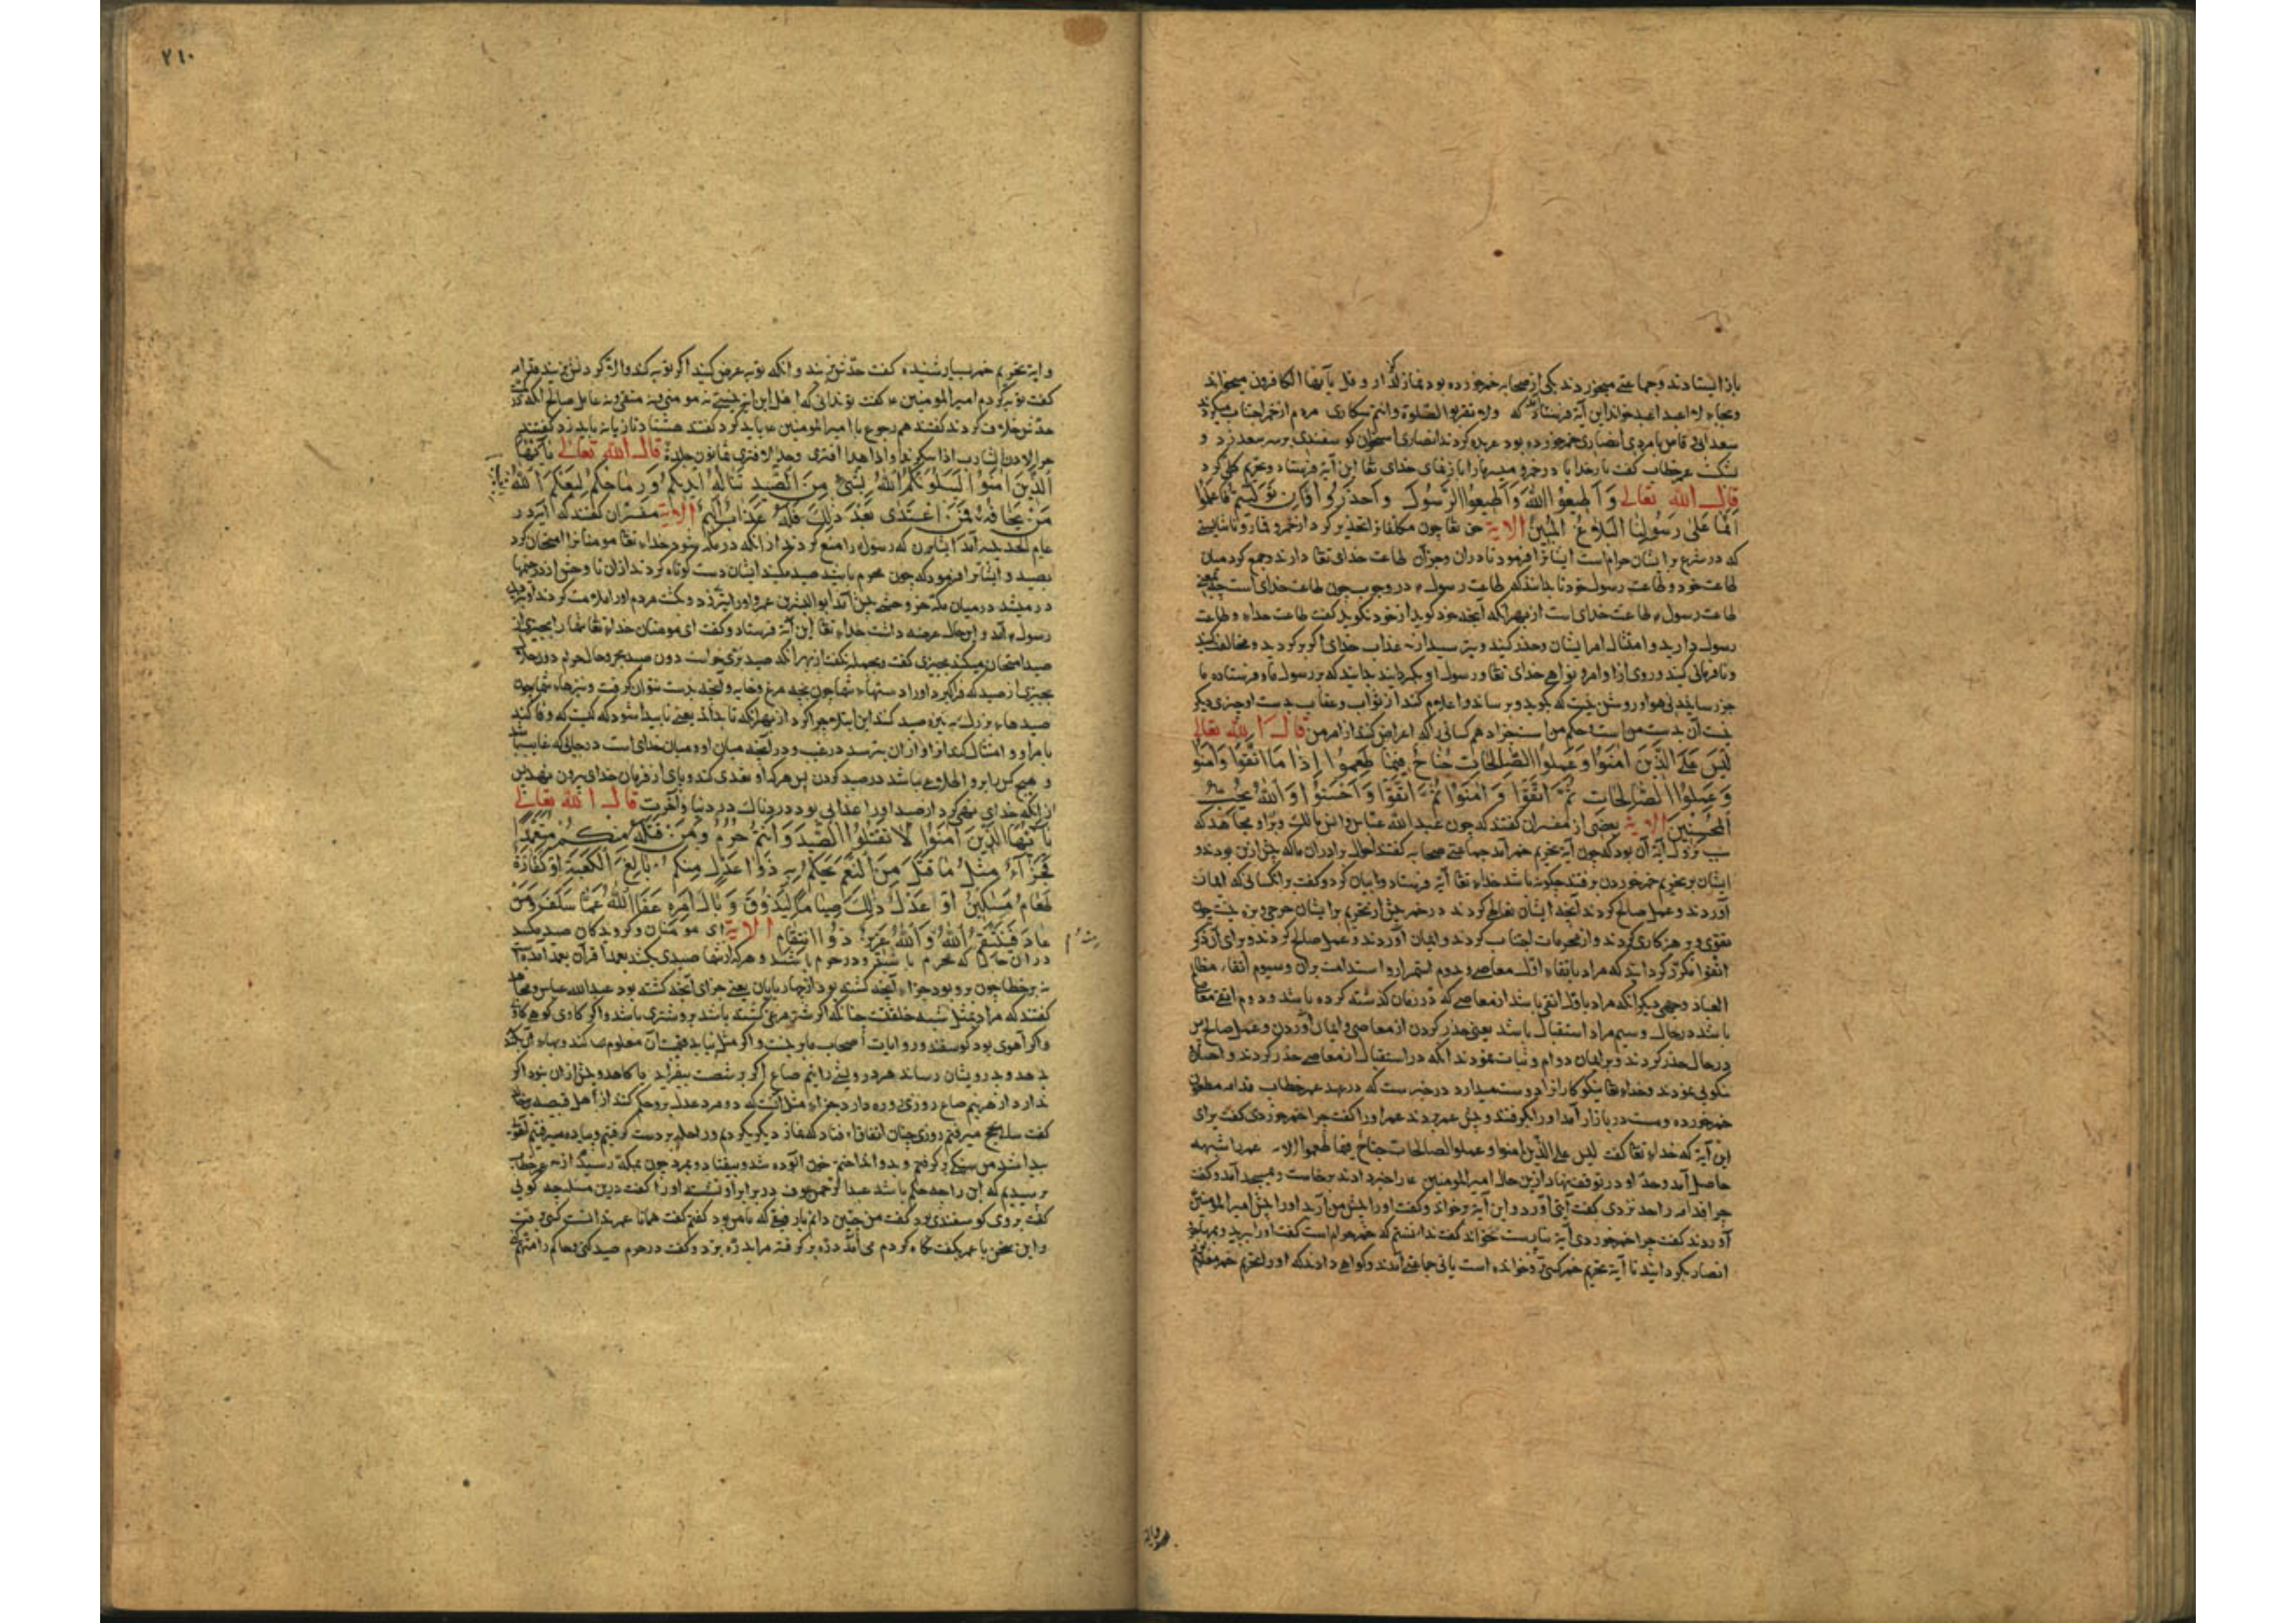 باز ایستادند و جماعتی میخوردند یکی از صحابه خمر خورده بود نماز گذارد و قل یا ایها الکافرون میخواند
و بجای لا اعبد اعبد خواند این آیة فرستاد که ولا تقربوا الصلوة وانتم سکاری مردم از خمر اجتناب میکردند
سعد ابی وقاص با مردی انصاری خمر خورده بود عربده کردند انصاری استخوان کوسفندی بر سر سعد زد و
بشکست عمر خطاب کفت بار خدایا در خمر و میسر ما را بیانی خدای تعا این آیة فرستاد و تحریم کلی کرد
قال الله تعالی وَاَطِیعُوا اللهَ وَاَطِیعُوا الرَّسُولَ وَاحْذَرُوا فَاِن تَوَلَّیْتُمْ فَاعْلَمُوا
اَنَّمَا عَلَی رَسُولِنَا الْبَلَاغُ الْمُبِینُ الایة حق تعا چون مکلفانرا تحذیر کرد از خمر و قمار و ناشایستی
که در شرع بر ایشان حرام است ایشانرا فرمود تا در آن و جز آن طاعت خدای تعا دارند و جمع کرد میان
طاعت خود و طاعت رسول خود تا بدانند که طاعت رسول در وجوب چون طاعت خدای است
طاعت رسول طاعت خدای است از بهر آنکه آنچه او کوید از خود نکوید کفت طاعت خداء و طاعت
رسول دارید و امتثال امر ایشان و حذر کنید و بترسید از عذاب خدای اکر برکردید و مخالفت کنید
و نافرمانی کنید و روی از اوامر و نواهی خدای تعا و رسول او بکردانید بدانید که بر رسول ما و فرستاده ما
جز رسانیدنی هویدا و روشن نیست که بکوید و برساند و اعلام کند از ثواب و عقاب بدست او چیزی دیکر
نیست آن بدست من است و حکم من است جزا دهم کسانی را که اعراض کنند از امر من قال الله تعالی
لَیْسَ عَلَی الَّذِینَ اٰمَنُوا وَعَمِلُوا الصَّالِحَاتِ جُنَاحٌ فِیمَا طَعِمُوا اِذَا مَا اتَّقَوْا وَاٰمَنُوا
وَعَمِلُوا الصَّالِحَاتِ ثُمَّ اتَّقَوْا وَاٰمَنُوا ثُمَّ اتَّقَوْا وَاَحْسَنُوا وَاللهُ یُحِبُّ
الْمُحْسِنِینَ الایة بعضی از مفسران کفتند که چون عبد الله عباس و انس مالک و برا و مجاهد که
سبب نزول آیة آن بود که چون آیة تحریم خمر آمد جماعتی صحابه کفتند احوال برادران ما که پیش ازین بودند و
ایشان بر تحریم خمر خوردن برفتند چکونه باشد خداء تعا آیة فرستاد و بیان کرد و کفت بر آنکسانی که ایمان
آوردند و عمل صالح کردند آنچه ایشان تعاطی کردند در خمر پیش از تحریم بر ایشان حرجی و بزه نیست چون
تقوی و پرهیزکاری کردند و از محرمات اجتناب کردند و ایمان آوردند و عمل صالح کردند و برای آن ذکر
اتقوا مکرر کردانید که مراد باتقاء اول معاصی و دوم استمرار و استدامت بر آن و سیوم اتقاء مظالم
العباد وجهی دیکر آنکه مراد باول اتقی باشد از معاصی که در زمان کذشته کرده باشد و دوم اتقی معاصی
باشد در حال و سیم مراد استقبال باشد یعنی حذر کردن از معاصی و ایمان آوردن و عمل صالح پس
در حال حذر کردند و بر ایمان دوام و ثبات نمودند آنکه در استقبال از معاصی حذر کردند و احسان
نیکویی نمودند و خداء تعا نیکوکارانرا دوست میدارد در خبرست که در عهد عمر خطاب قدامه مظعون
خمر خورده و مست در بازار آمد او را بکرفتند و پیش عمر بردند عمر او را کفت چرا خمر خوردی کفت برای
این آیة که خداء تعا کفت لیس علی الذین امنوا وعملوا الصالحات جناح فیما طعموا الایة عمر را شبهه
حاصل آمد و حد او در توقف نهاد ازین حال امیر المومنین ع را خبر دادند برخاست و بمسجد آمد و کفت
چرا قدامه را حد نزدی کفت آیتی آورد و این آیة برخواند و کفت او را پیش من آرید او را پیش امیر المومنین
آوردند کفت چرا خمر خوردی آیة بناراست بخواند کفت ندانستم که خمر حرام است کفت او را ببرید و بمهاجر و
انصار بکردانید تا آیة تحریم خمر کسی برو خوانده است یا نی جماعتی آمدند و کواهی دادند که او را تحریم خمر معلوم
و آیة تحریم خمر بسیار شنیده کفت حد برو بزنید و آنکه توبه عرض کنید اکر توبه کند و الا کردنش بزنید قدامه
کفت توبه کردم امیر المومنین ع کفت تو ندانی که اهل این آیة نیستی نه مومنی و نه متقی و نه عامل صالح آنکه
حد برو خلاف کردند کفتند هم رجوع با امیر المومنین ع باید کرد کفت هشتاد تازیانه باید زد کفتند
چرا لان الشارب اذا سکر هذی واذا هذی افتری وحد الافتری ثمانون جلدة قال الله تعالی یَا اَیُّهَا
الَّذِینَ اٰمَنُوا لَیَبْلُوَنَّکُمُ اللهُ بِشَیْءٍ مِنَ الصَّیْدِ تَنَالُهُ اَیْدِیکُمْ وَرِمَاحُکُمْ لِیَعْلَمَ اللهُ
مَنْ یَخَافُهُ فَمَنِ اعْتَدَی بَعْدَ ذٰلِکَ فَلَهُ عَذَابٌ اَلِیمٌ الایة مفسران کفتند که آیة در
عام الحدیبیه آمد ایشانرا که رسول را منع کردند از آنکه در مکه شود خداء تعا مومنانرا امتحان کرد
بصید و ایشانرا فرمود که چون محرم باشید صید مکنید ایشان دست کوتاه کردند از آن تا وحش از
در میشد در میان
رسول آمد و این حال عرضه داشت خداء تعا این آیة فرستاد و کفت ای مومنان خداء تعا شما را بچیزی از
صید امتحان میکند بچیزی کفت و بجمله نکفت از بهر آنکه صید بری خواست دون صید بحر و حال حرام دون حلال
بچیزی از صید که فراکیرد او را دستهاء شما چون بچه مرغ و خایه و آنچه بدست بتوان کرفت و نیزهاء شما چون
صیدهاء بزرک به نیزه صید کنند این ابتلا چرا کرد از بهر آنکه تا بداند یعنی تا پیدا شود که کیست که وفا کند
بامر او و امتثال کند اوامر او از آن بترسد در غیب و در آنچه میان او و میان خدای است در حالی که غایب باشد
و هیچ کس را برو اطلاعی نباشد در صید کردن پس هر که او تعدی کند و پای از فرمان خدای بیرون نهد پس
از آنکه خدای نهی کرد از صید او را عذابی بود دردناک در دنیا و آخرت قال الله تعالی
یَا اَیُّهَا الَّذِینَ اٰمَنُوا لَا تَقْتُلُوا الصَّیْدَ وَاَنْتُمْ حُرُمٌ وَمَنْ قَتَلَهُ مِنْکُمْ مُتَعَمِّدًا
فَجَزَاءٌ مِثْلُ مَا قَتَلَ مِنَ النَّعَمِ یَحْکُمُ بِهِ ذَوَا عَدْلٍ مِنْکُمْ بَالِغَ الْکَعْبَةِ اَوْ کَفَّارَةٌ
طَعَامُ مَسَاکِینَ اَوْ عَدْلُ ذٰلِکَ صِیَامًا لِیَذُوقَ وَبَالَ اَمْرِهِ عَفَا اللهُ عَمَّا سَلَفَ وَمَنْ
عَادَ فَیَنْتَقِمُ اللهُ وَاللهُ عَزِیزٌ ذُو انْتِقَامٍ الایة ای مومنان و کرویدکان صید مکنید
در آن حال که محرم باشید و در حرم باشید و هر که از شما صیدی بکشد بعمدا قران بعمد آمده است
نه بر خطا چون برو بود جزاء آنچه کشته بود از چهارپایان یعنی جزای آنچه کشته بود عبد الله عباس و مجاهد
کفتند که مراد بمثل شبه خلقت است چنانکه اکر شترمرغی کشته باشد برو شتری باشد و اکر کاوی کوهی کاوی
و اکر آهوی بود کوسفند و روایات اصحاب ما برینست و اکر مثل نیابد قیمت آن معلوم کند و بهاء آن بکند
بدهد و بدرویشان رساند هر درویشی را نیم صاع اکر بر شصت بیفزاید یا کاهد و بیش از آن نبود اکر
ندارد از هر نیم صاع روزی روزه دارد جزاء مثل آنست که دو مرد عدل برو حکم کنند از اهل قبیصه
کفت سالی بحج میرفتم روزی چنان اتفاق افتاد که نماز دیکر بکردم و راحله بر دست کرفتم و پیاده میرفتم آهوی
پیدا شد من سنکی برکرفتم و بدو انداختم خون آلوده شد و بیفتاد و بمرد چون بمکه رسیدم از عمر خطاب
پرسیدم که این را چه حکم باشد عبد الرحمن عوف در برابر او نشسته او را کفت درین مسئله چه کویی
کفت بروی کوسفندی بود کفت من چنین دانم یار رفیقی که با من بود کفتم کفت همانا عمر ندانست کسی
و این سخن با عمر بکفت نکاه کردم می آمد دره برکرفته مرا بدره بزد و کفت در حرم صید کنی و حاکم را متهم
۲۱۰